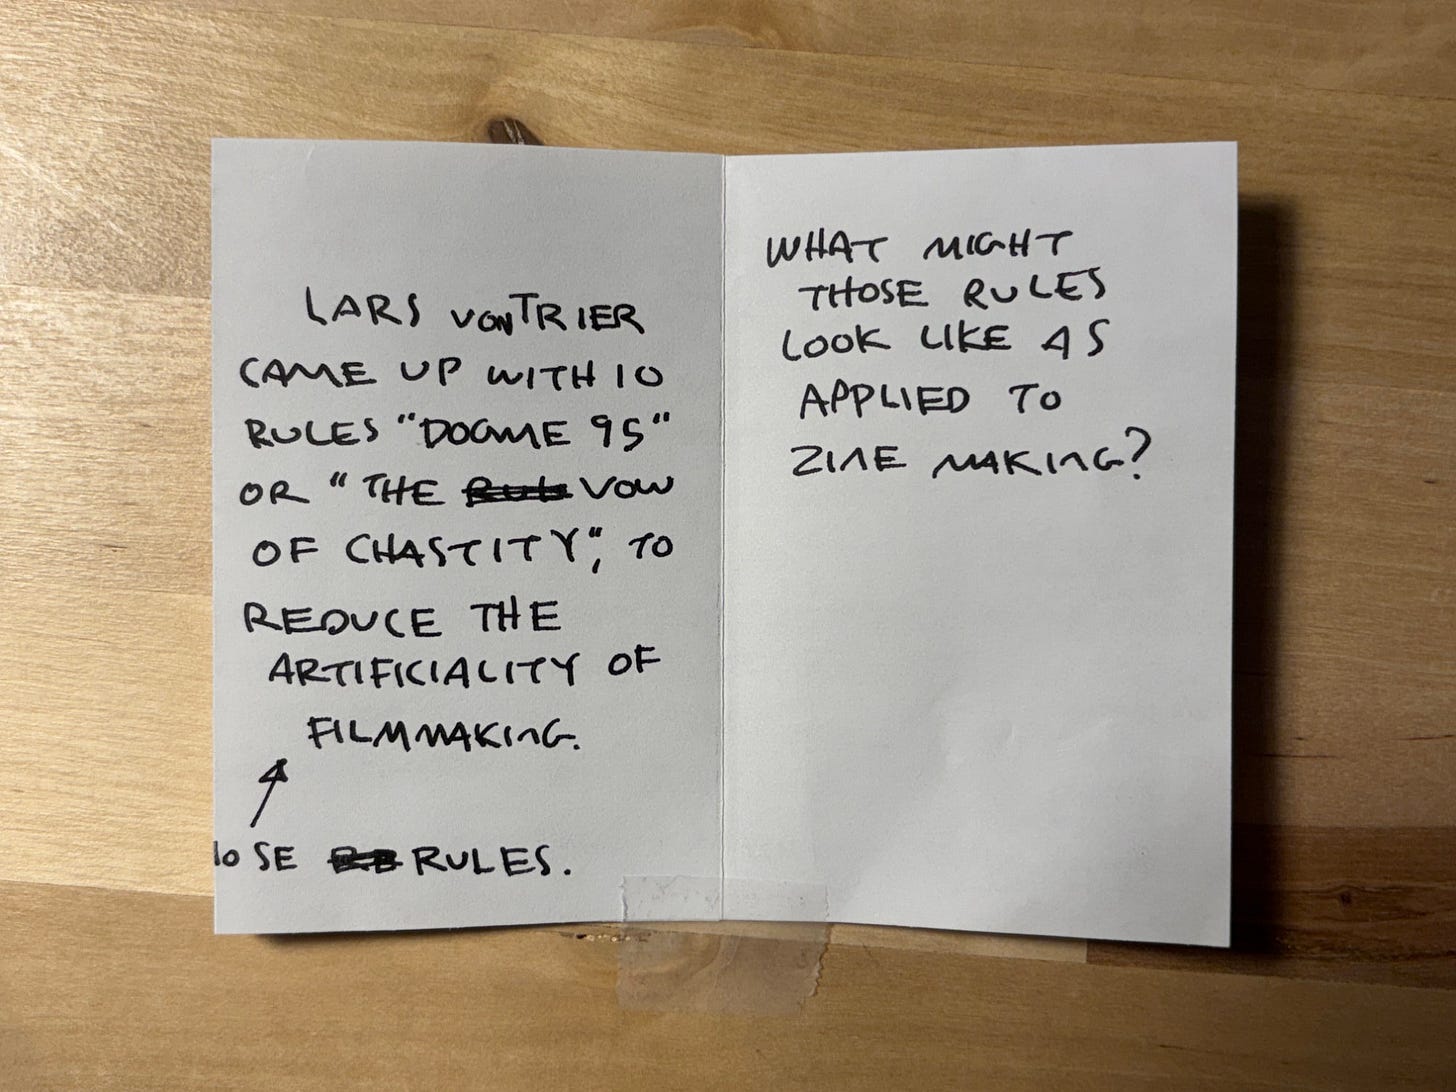 LARS VON TRIER
CAME UP WITH 10
RULES "DOGME 95"
OR "THE VOW
OF CHASTITY", TO
REDUCE THE
ARTIFICIALITY OF
FILMMAKING.
SE RULES.
WHAT MIGHT
THOSE RULES
LOOK LIKE AS
APPLIED TO
ZINE MAKING?